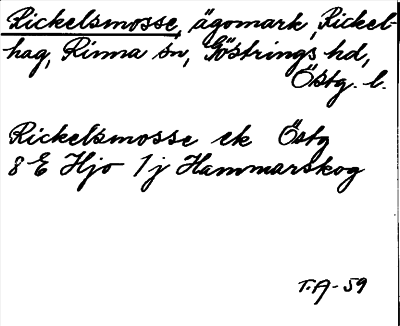 Rickelsmosse, ägomark, Rickel-
hag, Rinna sn, Göstrings hd,
Östg. l.
Rickelsmosse ek Östg
8 E Hjo 1j Hammarskog
T.A-59